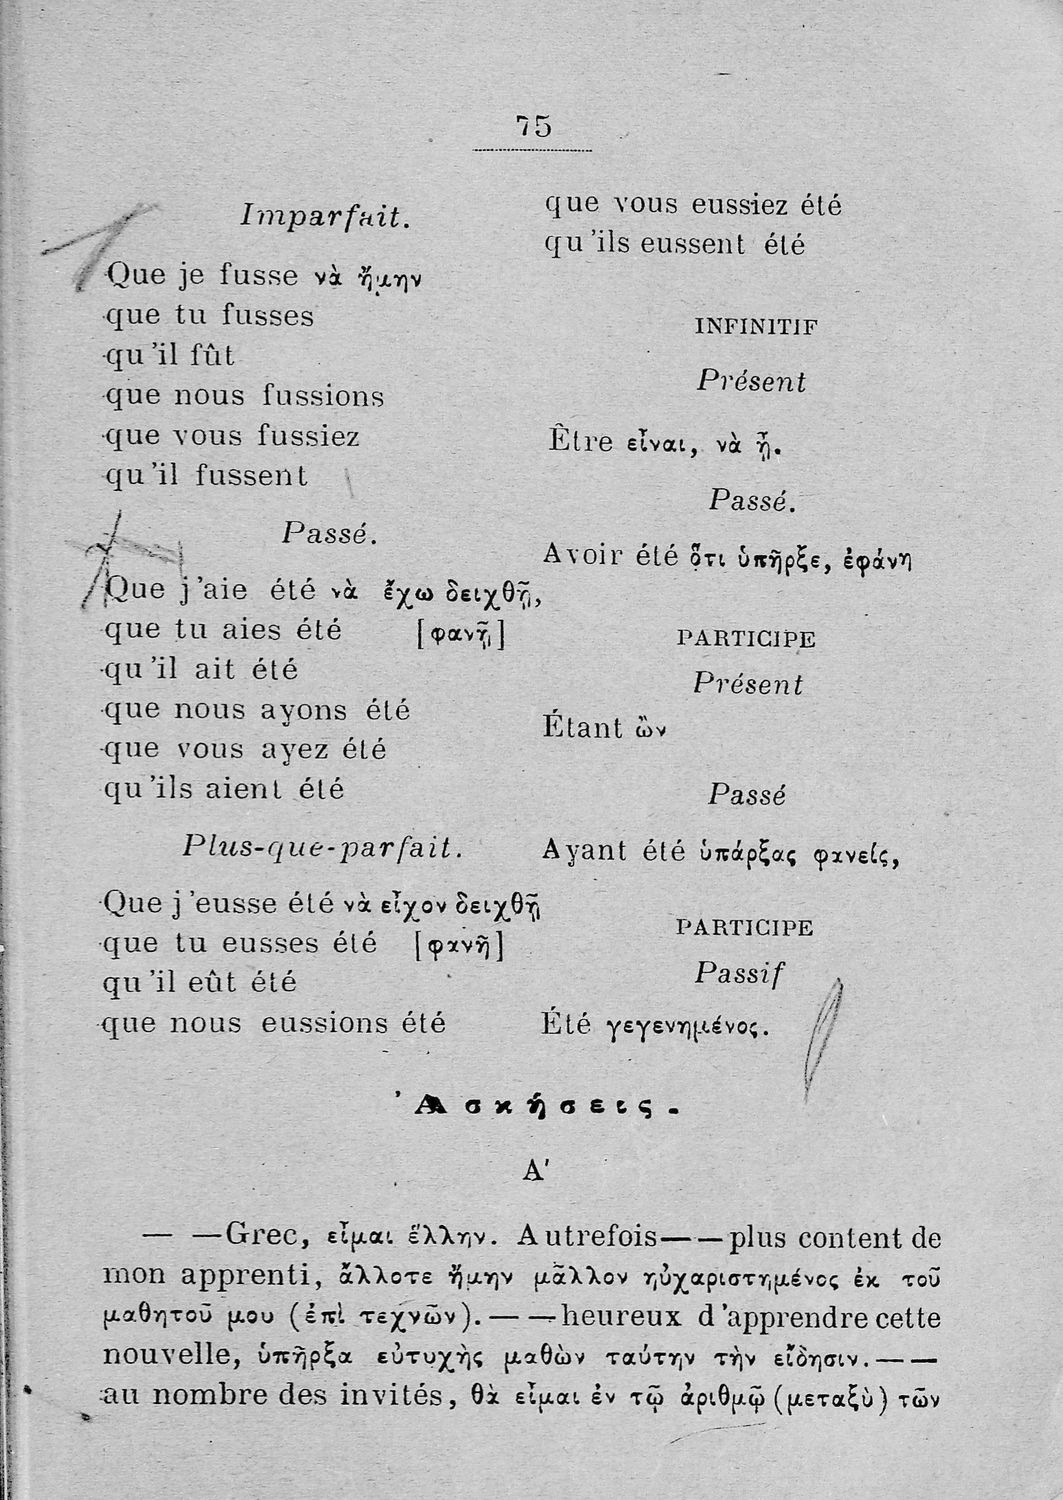 75
Imparfait.
Que je fusse νὰ ἤμην
que tu fusses
qu'il fût
que nous fussions
que vous fussiez
qu'il fussent
Passé.
Que j'aie été νὰ ἔχω δειχθῇ,
que tu aies été [φανῇ]
qu'il ait été
que nous ayons été
que vous ayez été
qu'ils aient été
Plus-que-parfait.
Que j'eusse été νὰ εἶχον δειχθῇ
que tu eusses été [φανῆ]
qu'il eût été
que nous eussions été
que vous eussiez été
qu'ils eussent été
INFINITIF
Présent
Être εἶναι, νὰ ᾖ.
Passé.
Avoir été ὅτι ὑπῆρξε, ἐφάνη
PARTICIPE
Présent
Étant ὢν
Passé
Ayant été ὑπάρξας φανείς,
PARTICIPE
Passif
Été γεγενημένος.
Ἀσκήσεις.
Α'
— —Grec, εἶμαι ἕλλην. Autrefois— —plus content de
mon apprenti, ἄλλοτε ἤμην μᾶλλον ηὐχαριστημένος ἐκ τοῦ
μαθητοῦ μου (ἐπὶ τεχνῶν).— —heureux d'apprendre cette
nouvelle, ὑπῆρξα εὐτυχὴς μαθὼν ταύτην τὴν εἴδησιν.— —
au nombre des invités, θὰ εἶμαι ἐν τῷ ἀριθμῷ (μεταξὺ) τῶν